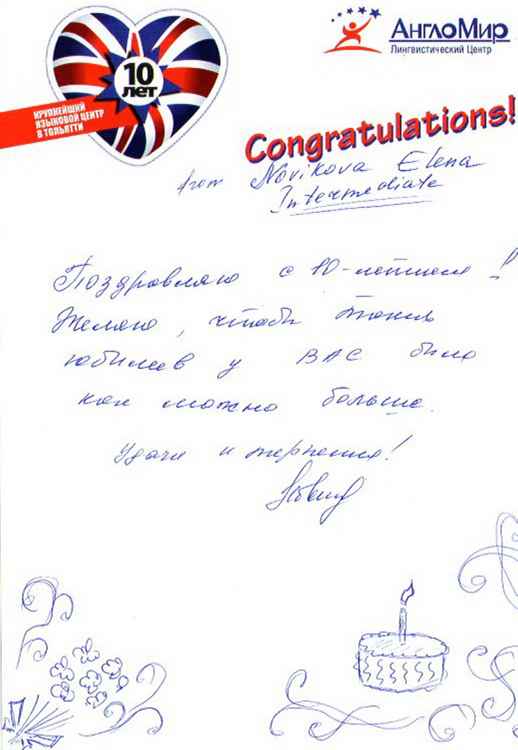 10
ЛЕТ
КРУПНЕЙШИЙ
ЯЗЫКОВОЙ ЦЕНТР
В ТОЛЬЯТТИ
АнглоМир
Лингвистический Центр
Congratulations!
from Novikova Elena
Intermediate
Поздравляю с 10-летием!
Желаю, чтобы таких
юбилеев у ВАС было
как можно больше.
Удачи и терпения!